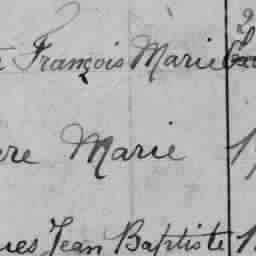 François Marie
ere Marie
ues Jean Baptiste